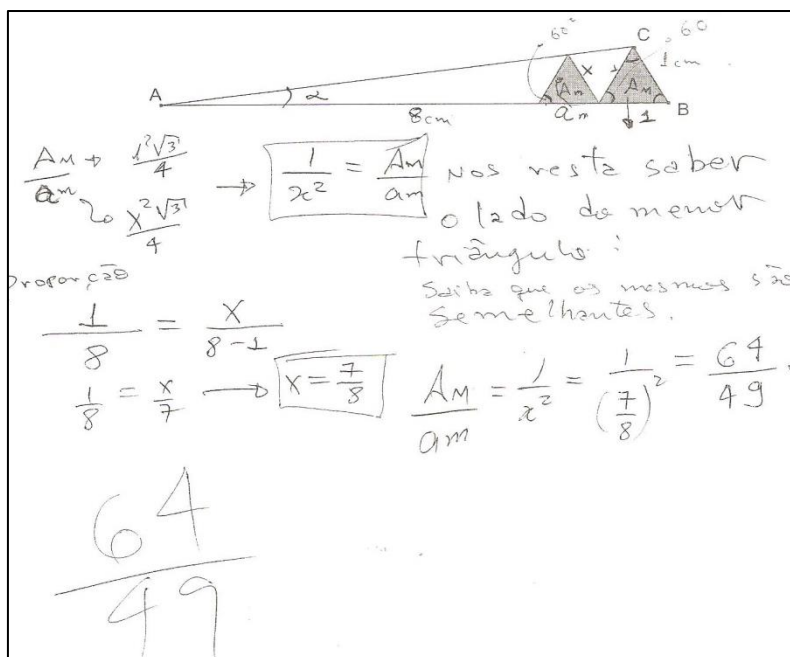 60°
C
60
1cm
x
1
A
α
Am
AM
B
8cm
am
1
AM → 1²√3/4
am → x²√3/4
→ 1/x² = AM/am
Nos resta saber
o lado do menor
triângulo:
Saiba que os mesmos são
semelhantes.
proporção
1/8 = x/8-1
1/8 = x/7 → x = 7/8
AM/am = 1/x² = 1/(7/8)² = 64/49
64
49